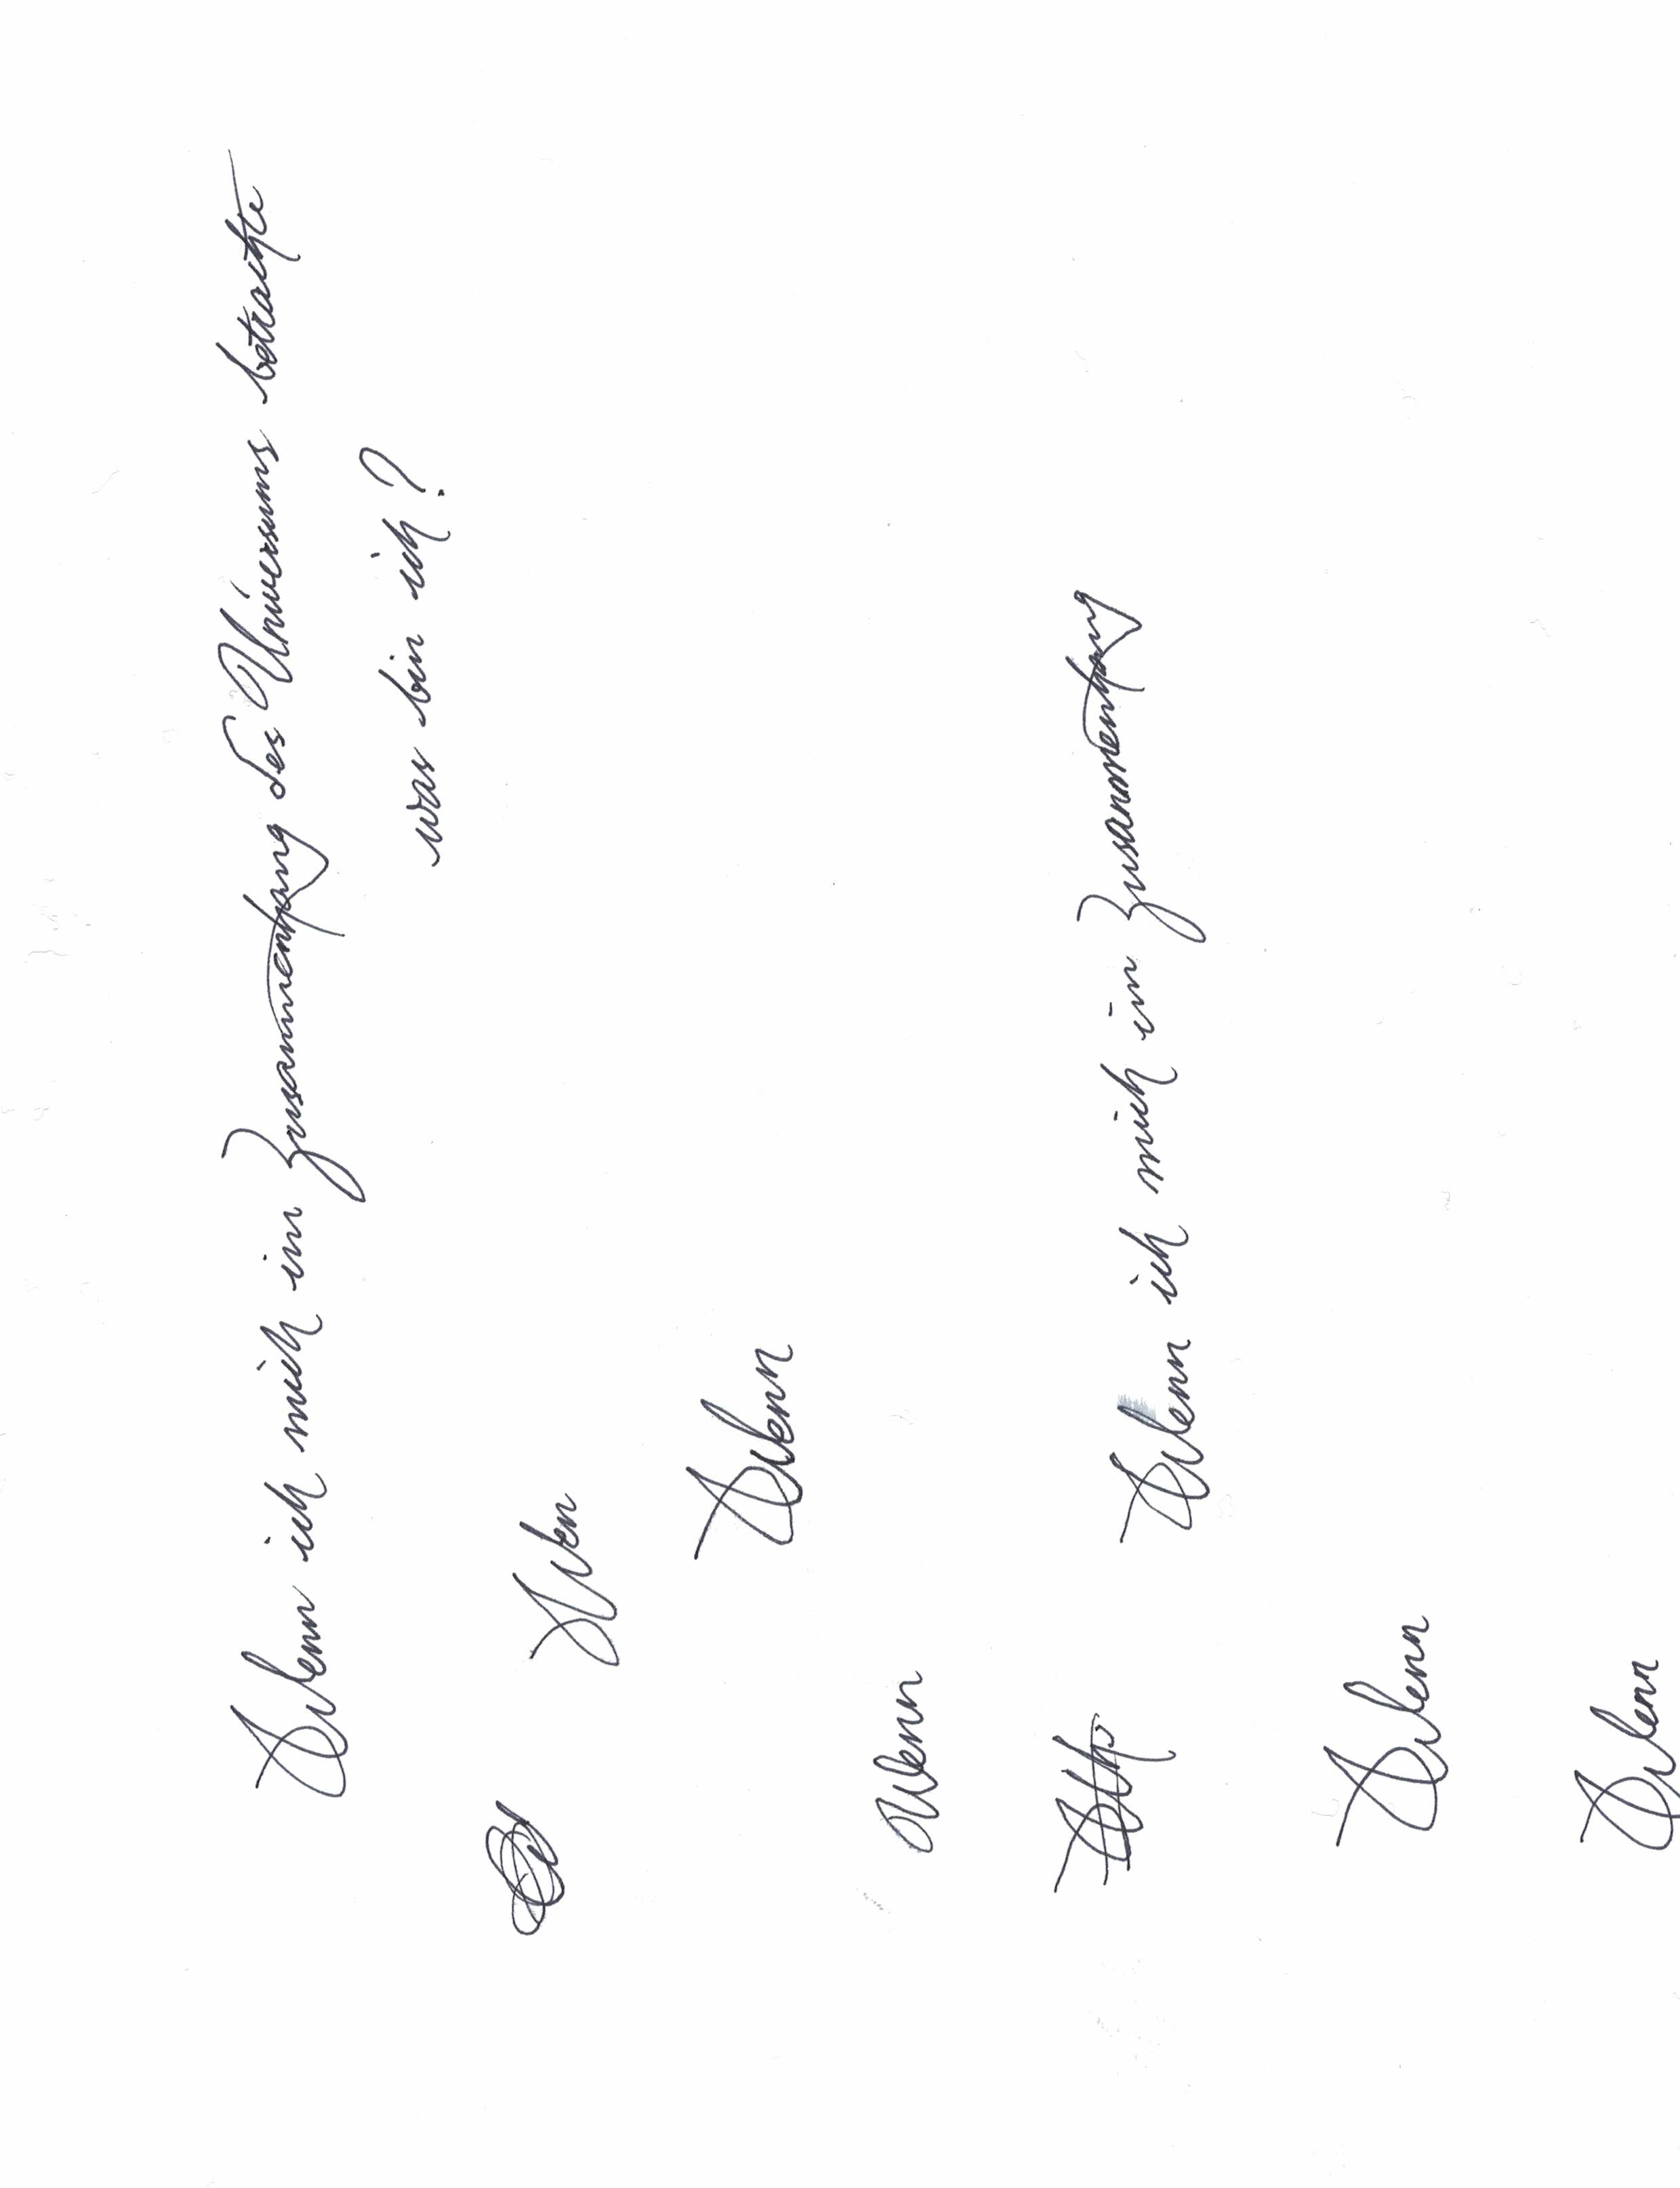 Wenn ich mich im Zusammenhang des Universums betrachte
was bin ich?
Wen
Wenn
Wenn
Wenn ich mich im Zusammenhang
Wenn
Wenn